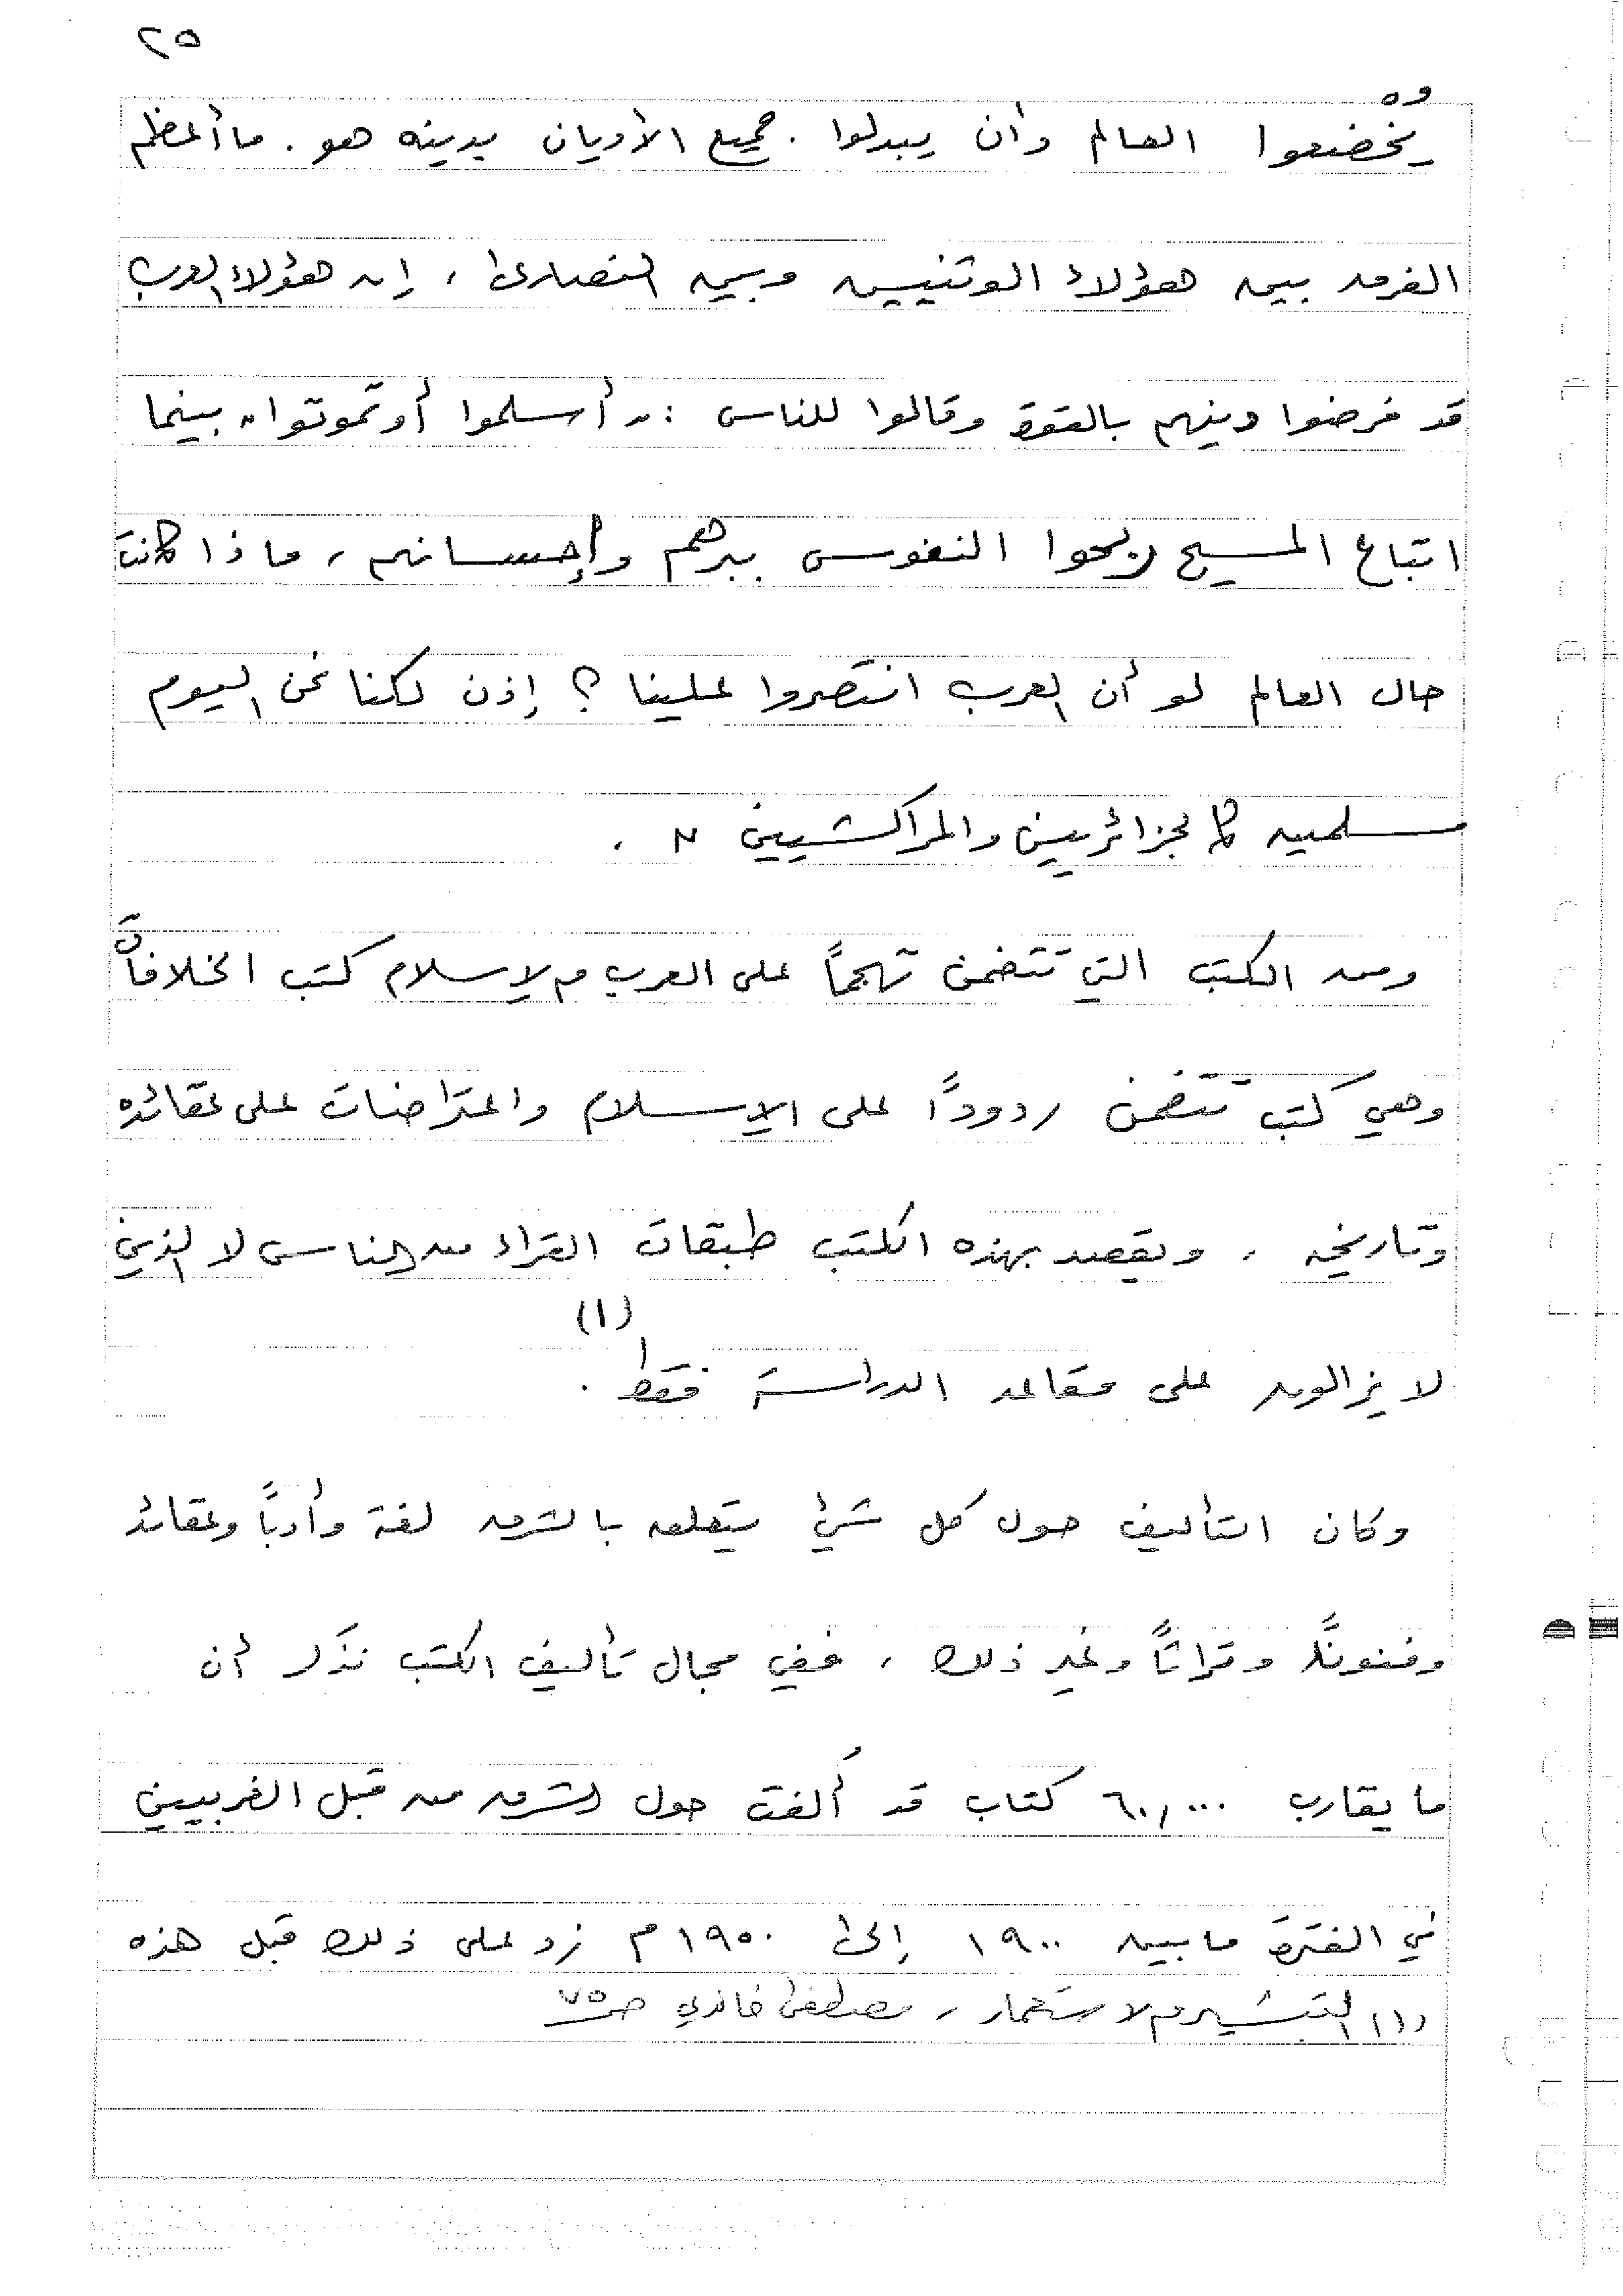 ٢٥
يخضعوا العالم وأن يبدلوا . جميع الأديان بدينه هو . ما أعظم
الفرق بين هؤلاء الوثنيين وبين النصارى ، إن هؤلاء العرب
قد فرضوا دينهم بالقوة وقالوا للناس : " أسلموا أو تموتوا " بينما
اتباع المسيح ربحوا النفوس ببرهم وإحسانهم ، ماذا كانت
حال العالم لو أن العرب انتصروا علينا ؟ إذن لكنا نحن اليوم
مسلمين كالجزائريين والمراكشيين " .
ومن الكتب التي تتضمن تهجماً على العرب والإسلام كتب الخلافات
وهي كتب تتضمن ردوداً على الإسلام واعتراضات على عقائده
وتاريخه . ويقصد بهذه الكتب طبقات القراء من الناس لا الذين
لا يزالون على مقاعد الدراسة فقط (١) .
وكان التأليف حول كل شيء يتعلق بالشرق لغة وأدباً وعقائد
وفنوناً وتراثاً وغير ذلك ، ففي مجال تأليف الكتب نذكر أن
ما يقارب ٦٠,٠٠٠ كتاب قد أُلفت حول الشرق من قبل الغربيين
في الفترة ما بين ١٩٠٠ إلى ١٩٥٠ م زد على ذلك قبل هذه
(١) التبشير والاستعمار ، مصطفى خالدي ص ٧٥